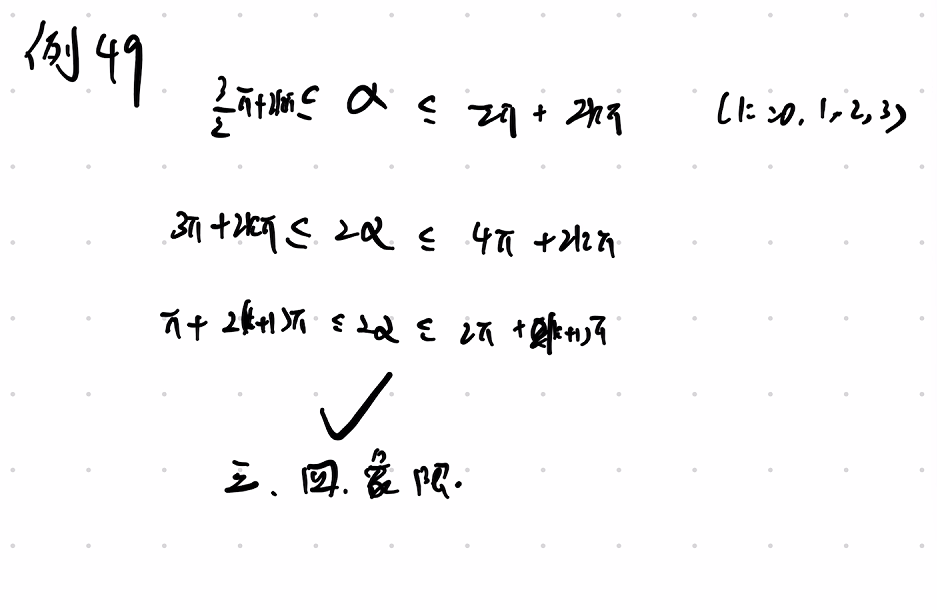 例49
3/2 π+2kπ ≤ α ≤ 2π + 2kπ (k=0,1,2,3)
3π+2kπ ≤ 2α ≤ 4π +2kπ
π+ 2(k+1)π ≤ 2α ≤ 2π +2(k+1)π
✓
三、四、象限.